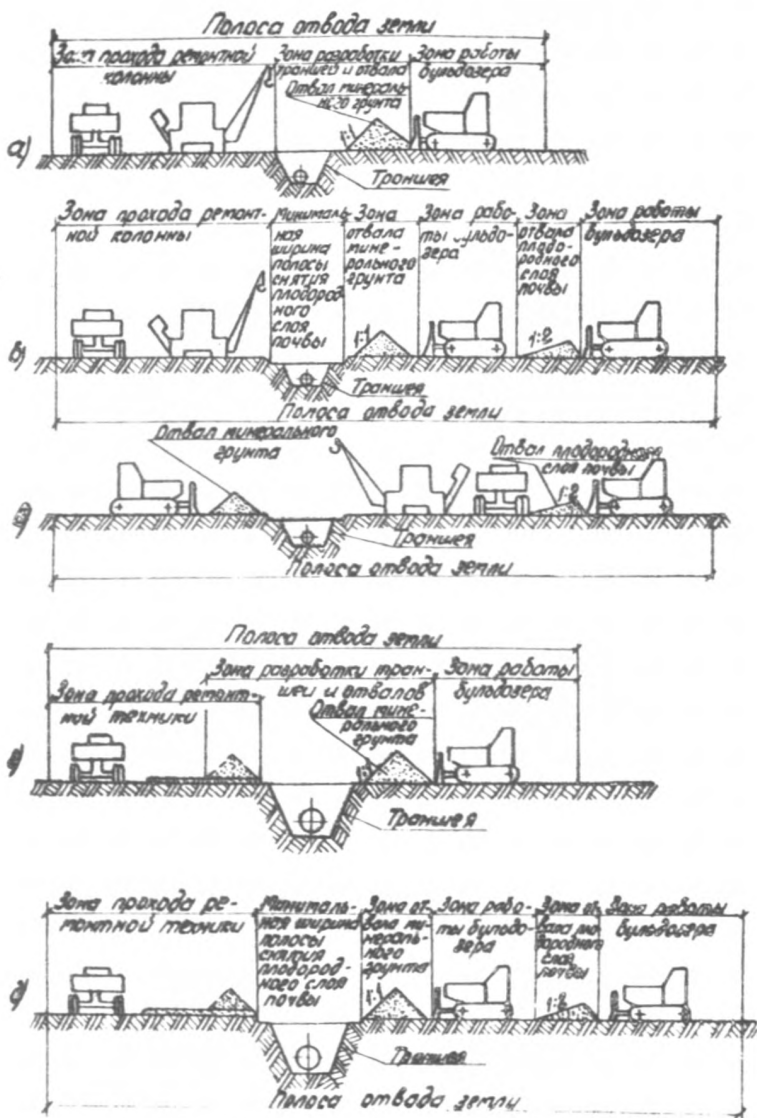 Полоса отвода земли
прохода ремонтной
колонны
Зона разработки
траншей и отвала
Отвал минераль-
ного грунта
Зона работы
бульдозера
а)
1:1
Траншея
Зона прохода ремонт-
ной колонны
Минималь-
ная
ширина
полосы
снятия
плодород-
ного
слоя
почвы
Зона
отвала
мине-
рального
грунта
Зона рабо-
ты бульдо-
зера
Зона
отвала
плодо-
родного
слоя
почвы
Зона работы
бульдозера
в)
1:1
1:2
Траншея
Полоса отвода земли
Отвал минерального
грунта
Отвал плодородного
слоя почвы
1:2
Траншея
Полоса отвода земли
Полоса отвода земли
Зона разработки тран-
шеи и отвалов
Зона работы
бульдозера
Зона прохода ремонт-
ной техники
Отвал мине-
рального
грунта
Траншея
Зона прохода ре-
монтной техники
Минималь-
ная ширина
полосы
снятия
плодород-
ного слоя
почвы
Зона от-
вала ми-
нераль-
ного
грунта
Зона рабо-
ты бульдо-
зера
Зона от-
вала пло-
дородного
слоя
почвы
Зона работы
бульдозера
д)
1:1
1:2
Траншея
Полоса отвода земли